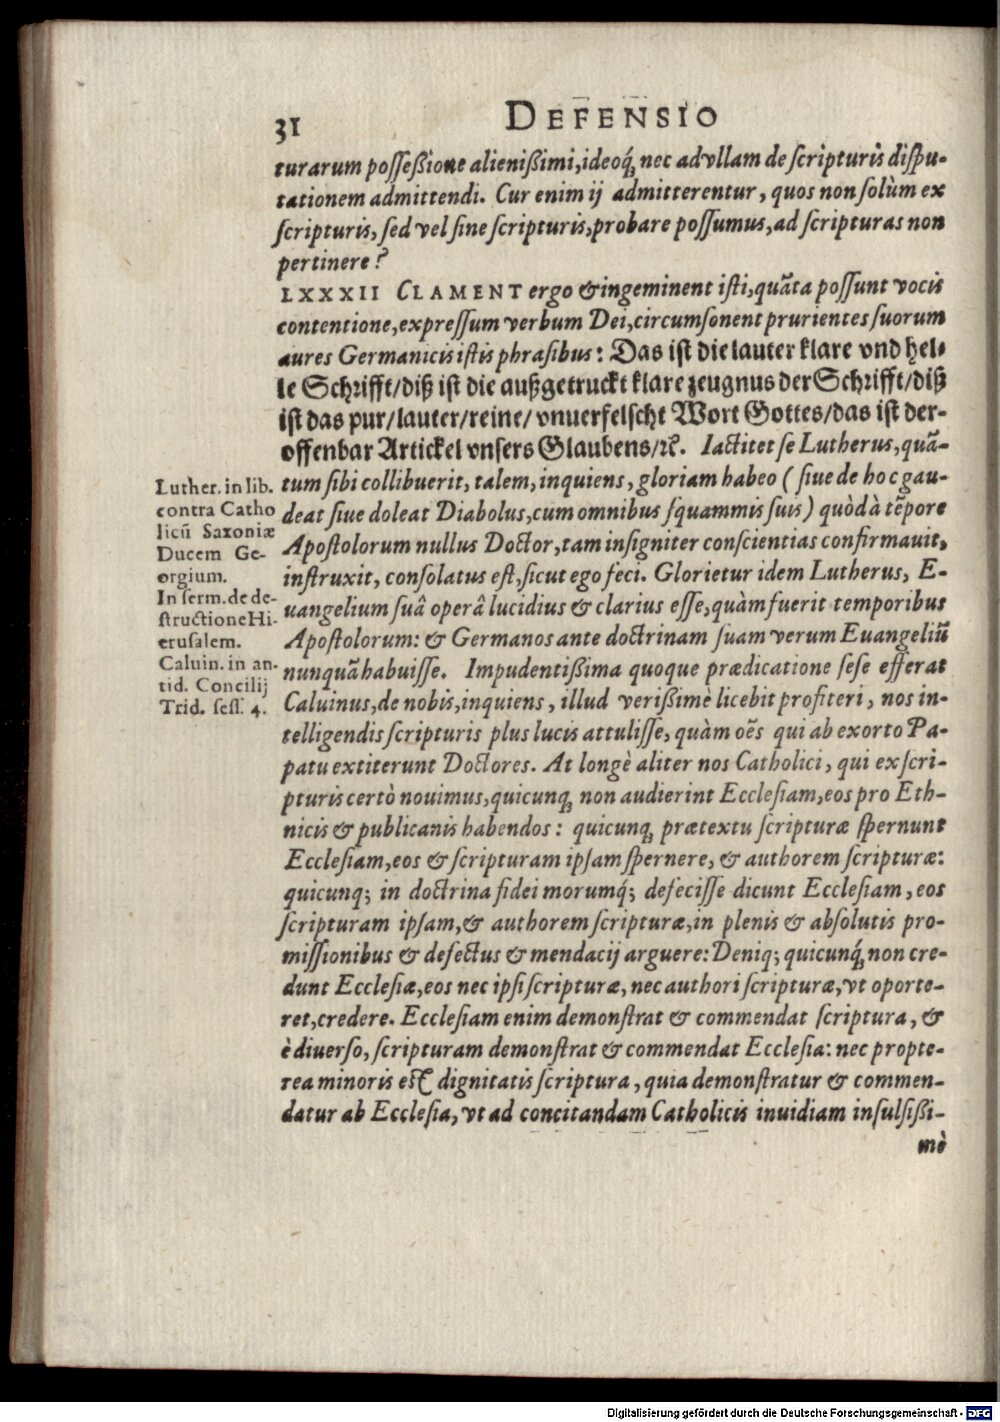 31 DEFENSIO
turarum poſſeßione alienißimi, ideoq́; nec ad vllam de ſcripturis diſpu-
tationem admittendi. Cur enim ij admitterentur, quos non ſolùm ex
ſcripturis, ſed vel ſine ſcripturis, probare poſſumus, ad ſcripturas non
pertinere?
LXXXII CLAMENT ergo & ingeminent iſti, quãta poſſunt vocis
contentione, expreſſum verbum Dei, circumſonent prurientes ſuorum
aures Germanicis iſtis phraſibus: Das iſt die lauter klare vnd hel-
le Schrifft/diß iſt die außgetruckt klare zeugnus der Schrifft/diß
iſt das pur/lauter/reine/vnuerfelſcht Wort Gottes/das iſt der-
offenbar Artickel vnſers Glaubens/ꝛc. Iactitet ſe Lutherus, quã-
tum ſibi collibuerit, talem, inquiens, gloriam habeo (ſiue de hoc gau-
deat ſiue doleat Diabolus, cum omnibus ſquammis ſuis) quòd à tẽpore
Apoſtolorum nullus Doctor, tam inſigniter conſcientias confirmauit,
inſtruxit, conſolatus eſt, ſicut ego feci. Glorietur idem Lutherus, E-
uangelium ſuâ operâ lucidius & clarius eſſe, quàm fuerit temporibus
Apoſtolorum: & Germanos ante doctrinam ſuam verum Euangeliũ
nunquã habuiſſe. Impudentißima quoque prædicatione ſeſe efferat
Caluinus, de nobis, inquiens, illud verißimè licebit profiteri, nos in-
telligendis ſcripturis plus lucis attuliſſe, quàm oẽs qui ab exorto Pa-
patu extiterunt Doctores. At longè aliter nos Catholici, qui ex ſcri-
pturis certò nouimus, quicunq; non audierint Eccleſiam, eos pro Eth-
nicis & publicanis habendos: quicunq; prætextu ſcripturæ ſpernunt
Eccleſiam, eos & ſcripturam ipſam ſpernere, & authorem ſcripturæ:
quicunq; in doctrina fidei morumq́; defeciſſe dicunt Eccleſiam, eos
ſcripturam ipſam, & authorem ſcripturæ, in plenis & abſolutis pro-
miſſionibus & defectus & mendacij arguere: Deniq; quicunq́; non cre-
dunt Eccleſiæ, eos nec ipſi ſcripturæ, nec authori ſcripturæ, vt oporte-
ret, credere. Eccleſiam enim demonſtrat & commendat ſcriptura, &
è diuerſo, ſcripturam demonſtrat & commendat Eccleſia: nec propte-
rea minoris eſt dignitatis ſcriptura, quia demonſtratur & commen-
datur ab Eccleſia, vt ad concitandam Catholicis inuidiam inſulſißi-
mè
Luther. in lib.
contra Catho
licũ Saxoniæ
Ducem Ge-
orgium.
In ſerm. de de-
ſtructione Hi-
eruſalem.
Caluin. in an-
tid. Concilij
Trid. ſeſſ. 4.
Digitalisierung gefördert durch die Deutsche Forschungsgemeinschaft - DFG